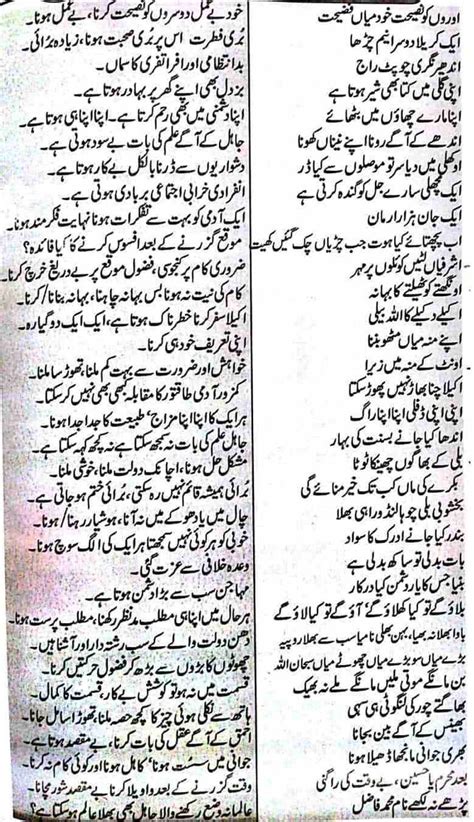 اوروں کو نصیحت خود میاں فضیحت
ایک کریلا دوسرا نیم چڑھا
اندھیر نگری چوپٹ راج
اپنی گلی میں کتا بھی شیر ہوتا ہے
اپنا مارے چھاؤں میں بٹھائے
اندھے کے آگے رونا اپنے نیناں کھونا
اوکھلی میں دیا سر تو موصلوں سے کیا ڈر
ایک مچھلی سارے جل کو گندہ کرتی ہے
ایک جان ہزار ارمان
اب پچھتائے کیا ہوت جب چڑیاں چگ گئیں کھیت
اشرفیاں لٹیں کوئلوں پر مہر
اونگھتے کو ٹھیلتے کا بہانہ
اکیلے دکیلے کا اللہ بیلی
اپنے منہ میاں مٹھو بننا
اونٹ کے منہ میں زیرا
اکیلا چنا بھاڑ نہیں پھوڑ سکتا
اپنی اپنی ڈفلی اپنا اپنا راگ
اندھا کیا جانے بسنت کی بہار
بلی کے بھاگوں چھینکا ٹوٹا
بکرے کی ماں کب تک خیر منائے گی
بخشو بی بلی چوہا لنڈورا ہی بھلا
بندر کیا جانے ادرک کا سواد
بات بدلی تو ساکھ بدلی ہے
بنیا جس کا یار دشمن کیا درکار
بلاؤ گے تو کیا کھلاؤ گے آؤ گے تو کیا لاؤ گے
باوا بھلا نہ بھیا، بہن بھلی نا میا سب سے بھلا روپیہ
بڑے میاں سو بڑے میاں چھوٹے میاں سبحان اللہ
بن مانگے موتی ملیں مانگے ملے نہ بھیک
بھاگتے چور کی لنگوٹی ہی سہی
بھینس کے آگے بین بجانا
بھری جوانی مانجھا ڈھیلا ہونا
بعد محرم یا حسین، بے وقت کی راگنی
پڑھے نہ لکھے نام محمد فاضل
خود بے عمل دوسروں کو نصیحت کرنا، بے عمل ہونا۔
بُری فطرت اس پر بُری صحبت ہونا، زیادہ بُرائی۔
بد انتظامی اور افراتفری کا سماں۔
بزدل بھی اپنے گھر پر بہادر ہوتا ہے۔
اپنا دشمنی میں بھی رحم کرتا ہے۔ اپنا اپنا ہی ہوتا ہے۔
جاہل کے آگے علم کی بات بے سود ہوتی ہے۔
دشواریوں سے ڈرنا بالکل بے کار ہوتا ہے۔
انفرادی خرابی اجتماعی بربادی ہوتی ہے۔
ایک آدمی کو بہت سے تفکرات ہونا نہایت فکر مند ہونا۔
موقع گزرنے کے بعد افسوس کرنے کا کیا فائدہ؟
ضروری کام پر کنجوسی، فضول موقع پر بے دریغ خرچ کرنا۔
کام کی نیت نہ ہونا بس بہانہ چاہنا، بہانہ بنانا/کرنا۔
اکیلا سفر کرنا خطرناک ہوتا ہے، ایک ایک دو گیارہ۔
اپنی تعریف خود ہی کرنا۔
خواہش اور ضرورت سے بہت کم ملنا، تھوڑا سا ملنا۔
کمزور آدمی طاقتور کا مقابلہ بھی بھی نہیں کر سکتا۔
ہر ایک کا اپنا اپنا مزاج، طبیعت کا جدا جدا ہونا۔
جاہل علم کی بات نہ سمجھ سکتا ہے نہ کچھ کہہ سکتا ہے۔
مشکل حل ہونا، اچانک دولت ملنا، خوشی ملنا۔
بُرائی ہمیشہ قائم نہیں رہ سکتی، بُرائی ختم ہو جاتی ہے۔
چال میں یا دھوکے میں نہ آنا، ہوشیار رہنا/ہونا۔
خوبی کو ہر کوئی نہیں سمجھتا ہر ایک کی الگ سوچ ہونا۔
وعدہ خلافی سے عزت گئی۔
مہاجن سب سے بڑا دشمن ہوتا ہے۔
ہر حال میں اپنا ہی مطلب مدنظر رکھنا، مطلب پرست ہونا۔
دھن دولت والے کے سب رشتہ دار اور آشنا ہیں۔
چھوٹوں کا بڑوں سے بڑھ کر فضول حرکتیں کرنا۔
قسمت میں نہ ہو تو کوشش بے کار، قسمت کا کمال۔
ہاتھ سے نکلی ہوئی چیز کا کچھ حصہ ملنا، تھوڑا سا مل جانا۔
احمق کے آگے عقل کی بات کرنا، بے مقصد ہوتا ہے۔
جوانی میں سست ہونا، کاہل ہونا اور کوئی کام نہ کرنا۔
وقت گزرنے کے بعد واویلا کرنا، بے مقصد شور مچانا۔
عالمانہ وضع رکھنے والا جاہل بھی بھلا عالم ہو سکتا ہے؟